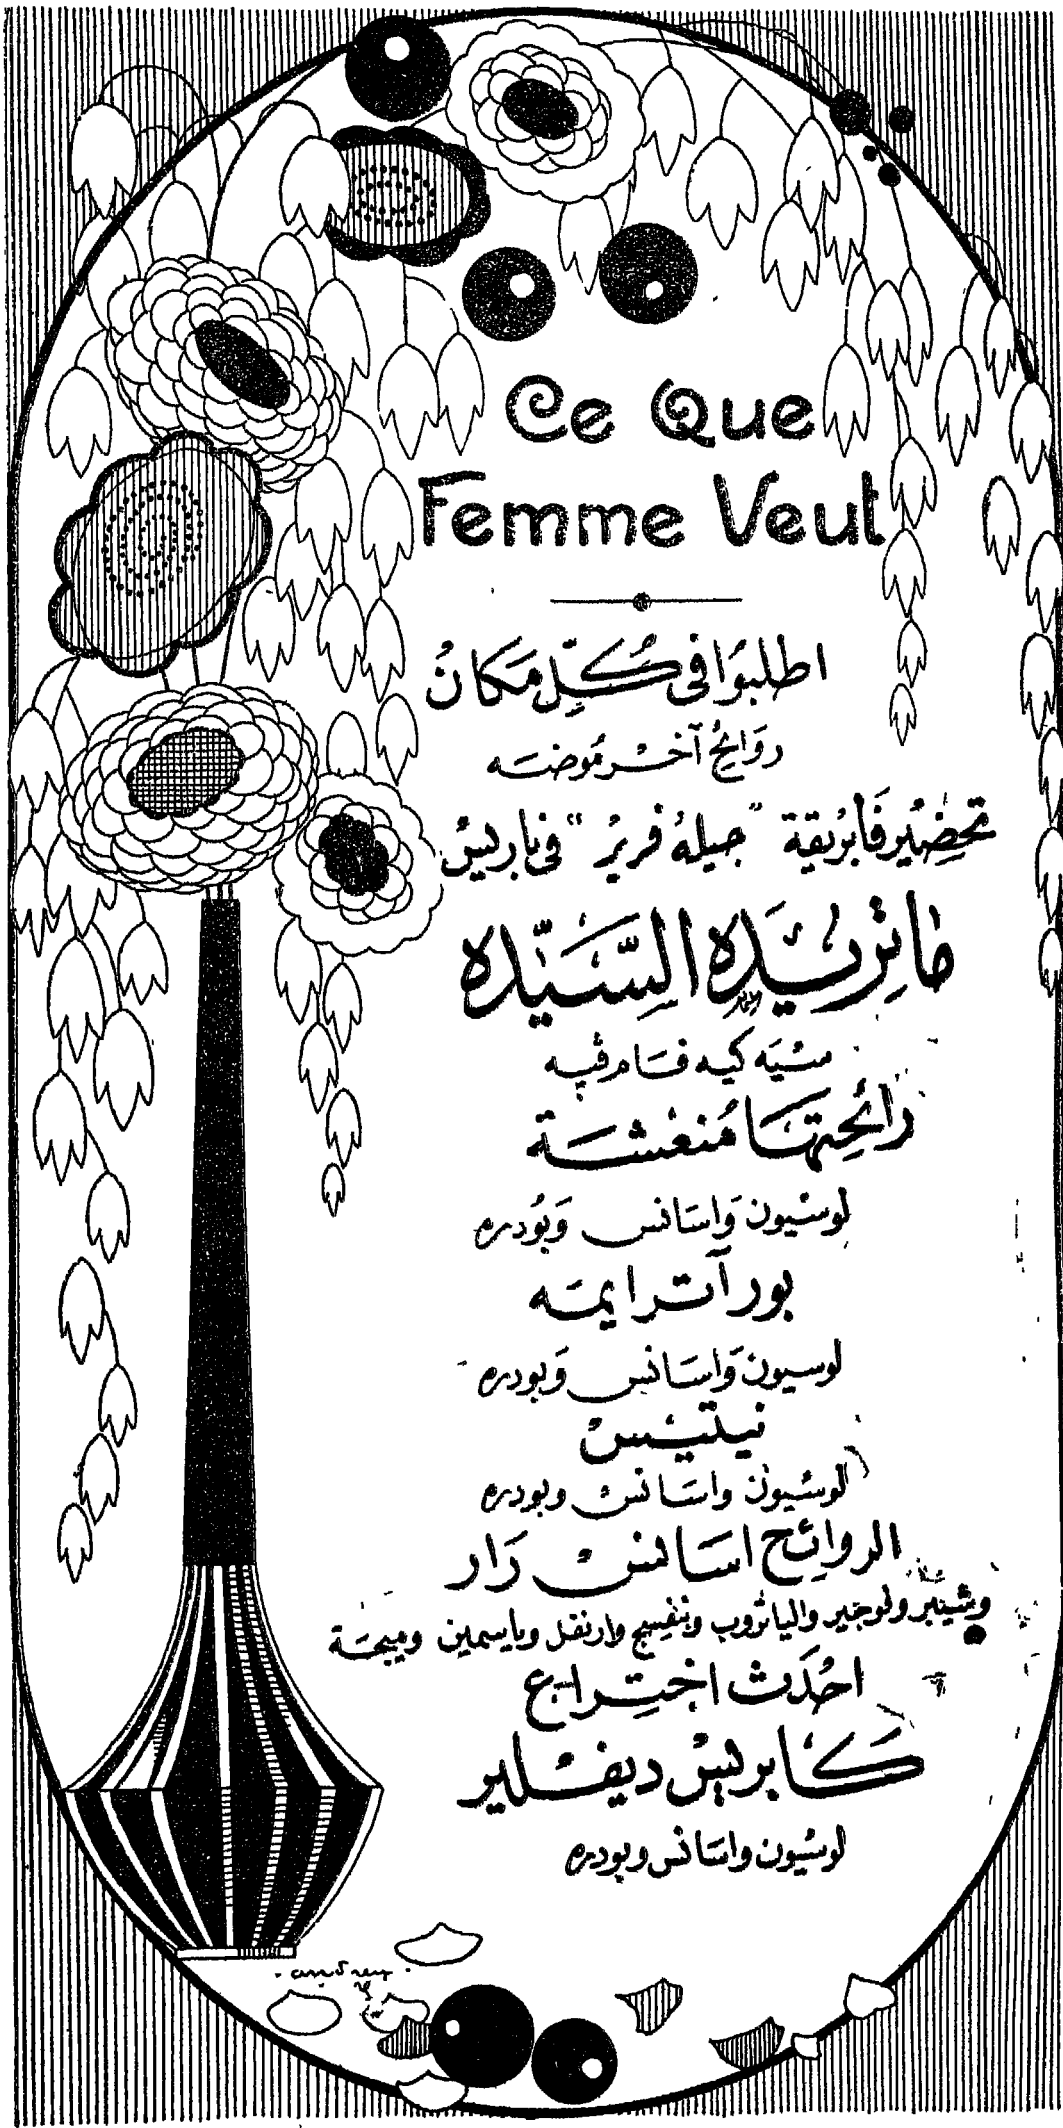 Ce Que
Femme Veut
اطلبوا فى كل مكان
روائح آخر موضه
تحضير فابريقة "جيله فرير" فى باريس
ما تريده السيده
سيه كيه فام فيه
رائحتها منعشة
لوسيون واسانس وبودره
بور آترايمه
لوسيون واسانس وبودره
نيلتيس
لوسيون واسانس وبودره
الروائح اسانس رار
وشيبر ولوجير والياتروب وبنفسج وارنفل وياسمين وميجة
احدث اختراع
كابريس ديفلير
لوسيون واسانس وبودره